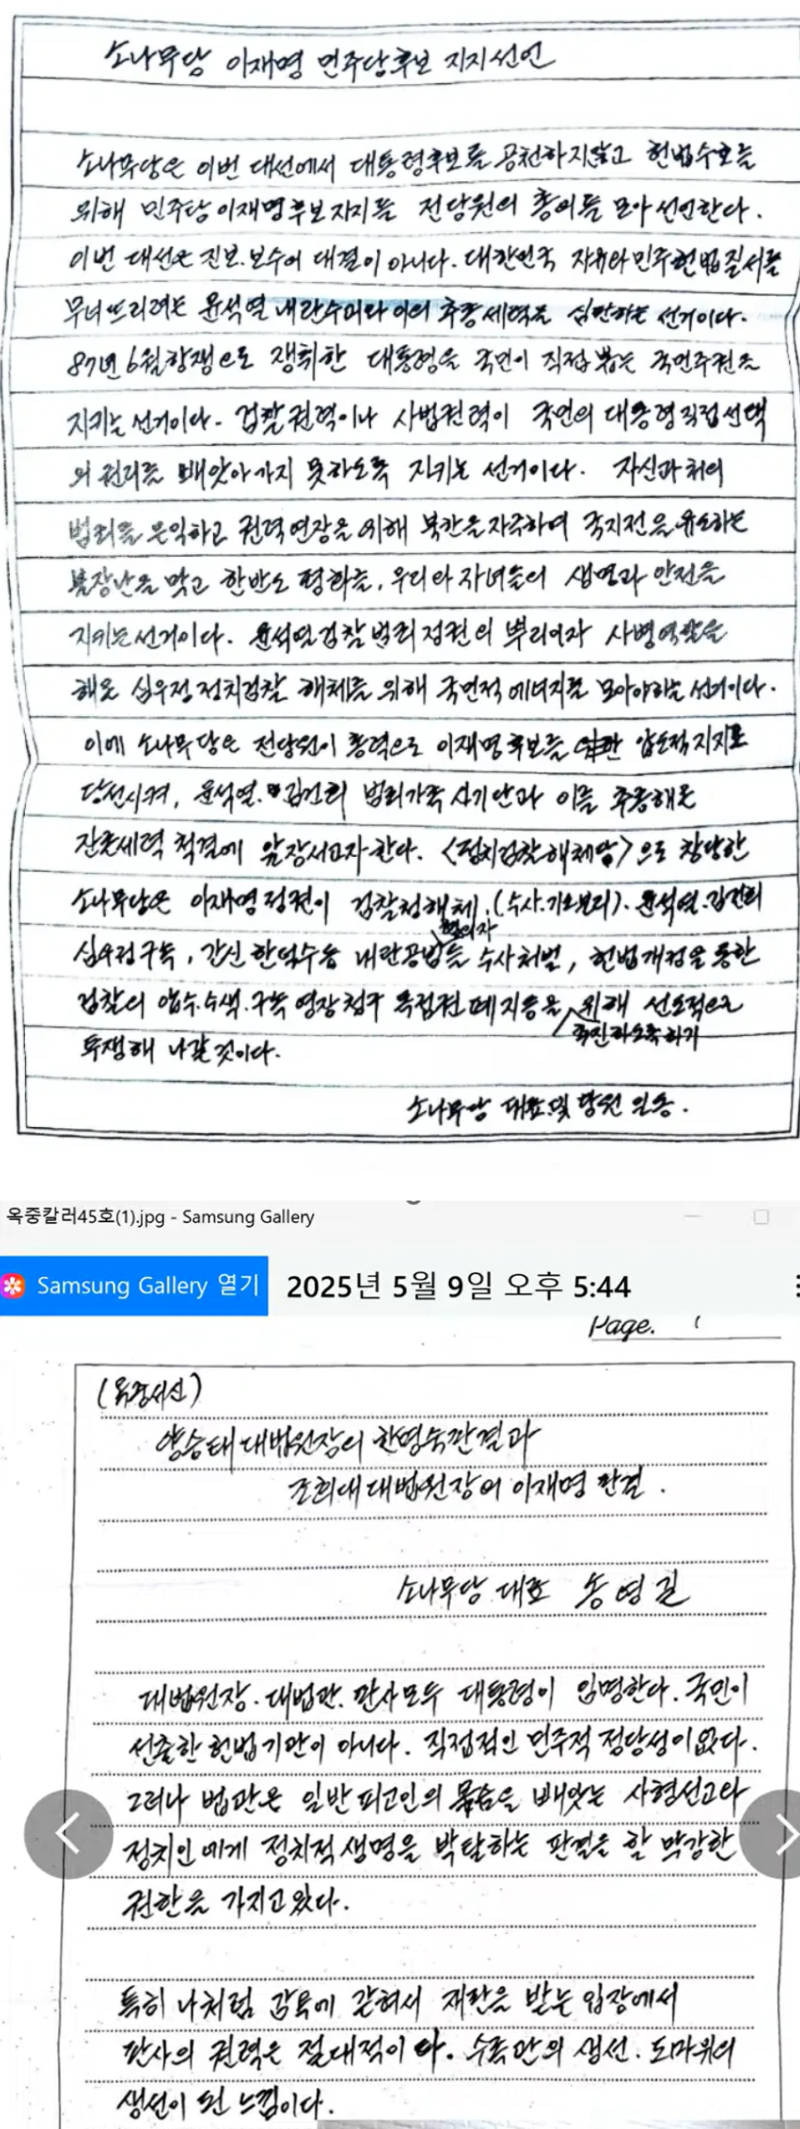 소나무당 이재명 민주당후보 지지선언
소나무당은 이번 대선에서 대통령후보를 공천하지않고 헌법수호를
위해 민주당 이재명후보 지지를 전당원의 총의를 모아 선언한다.
이번 대선은 진보.보수의 대결이 아니다. 대한민국 자유와 민주헌법질서를
무너뜨리려는 윤석열 내란수괴와 이의 추종세력을 심판하는 선거이다.
87년 6월항쟁으로 쟁취한 대통령을 국민이 직접 뽑는 국민주권을
지키는 선거이다. 검찰권력이나 사법권력이 국민의 대통령직접선택
의 권리를 빼앗아가지 못하도록 지키는 선거이다. 자신과 처의
범죄를 은익하고 권력연장을 위해 북한을 자극하여 국지전을 유도하는
불장난을 막고 한반도 평화를, 우리와 자녀들의 생명과 안전을
지키는 선거이다. 윤석열검찰범죄정권의 뿌리이자 사병역할을
해온 심우정 정치검찰 해체를 위해 국민적 에너지를 모아야하는 선거이다.
이에 소나무당은 전당원이 총력으로 이재명후보를 압도적지지로
당선시켜, 윤석열.김건희 범죄가족사기단과 이를 추종해온
잔존세력 척결에 앞장서고자 한다. <정치검찰해체당>으로 창당한
소나무당은 이재명정권이 검찰청해체.(수사.기소분리). 윤석열.김건희
심우정구속, 간신 한덕수등 내란공범혐의자들 수사처벌, 헌법개정을 통한
검찰의 압수.수색.구속영장청구 독점권 폐지등을 추진하도록하기 위해 선도적으로
투쟁해 나갈것이다.
소나무당 대표및 당원 일동.
옥중칼러45호(1).jpg - Samsung Gallery
Samsung Gallery 열기 2025년 5월 9일 오후 5:44
Page. 1
(옥중서신)
양승태대법원장의 한명숙판결과
조희대대법원장의 이재명 판결.
소나무당 대표 송영길
대법원장.대법관.판사모두 대통령이 임명한다. 국민이
선출한 헌법기관이 아니다. 직접적인 민주적 정당성이 없다.
그러나 법관은 일반 피고인의 목숨을 빼앗는 사형선고와
정치인에게 정치적생명을 박탈하는 판결을 할 막강한
권한을 가지고있다.
특히 나처럼 감옥에 갇혀서 재판을 받는 입장에서
판사의 권력은 절대적이다. 수족관의 생선.도마위의
생선이 된 느낌이다.